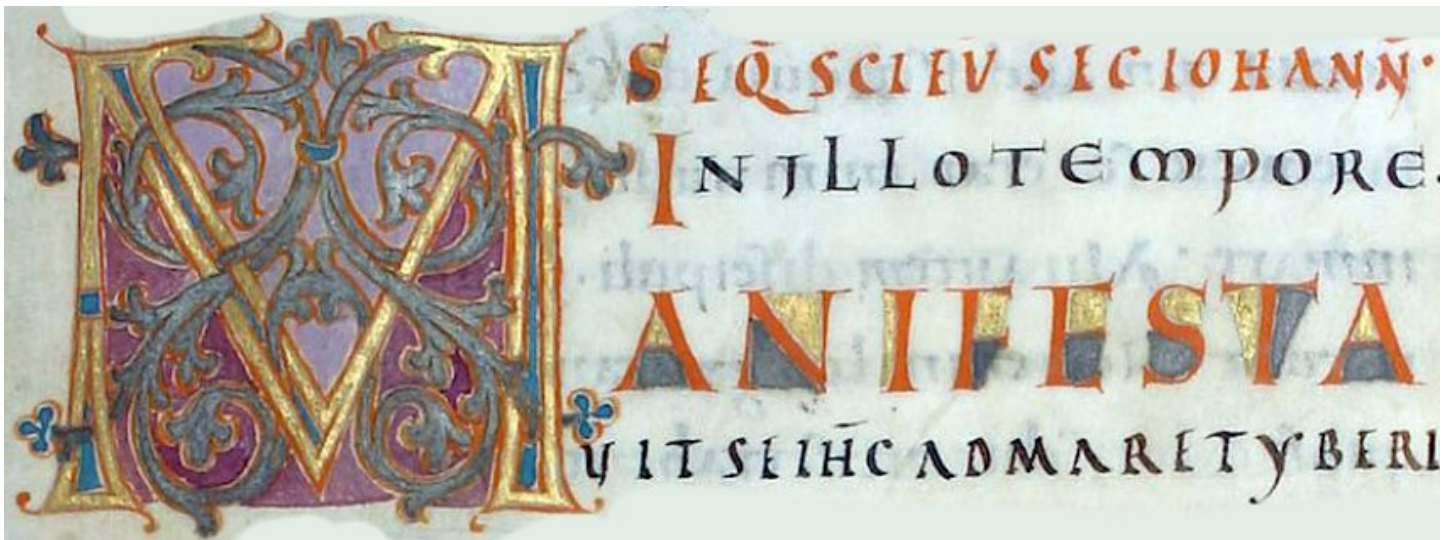 SEQ̄ SCI EV̄ SEC IOHANN̄·
IN ILLO TEMPORE.
MANIFESTA
UIT SE IHC̄ AD MARE TYBERI